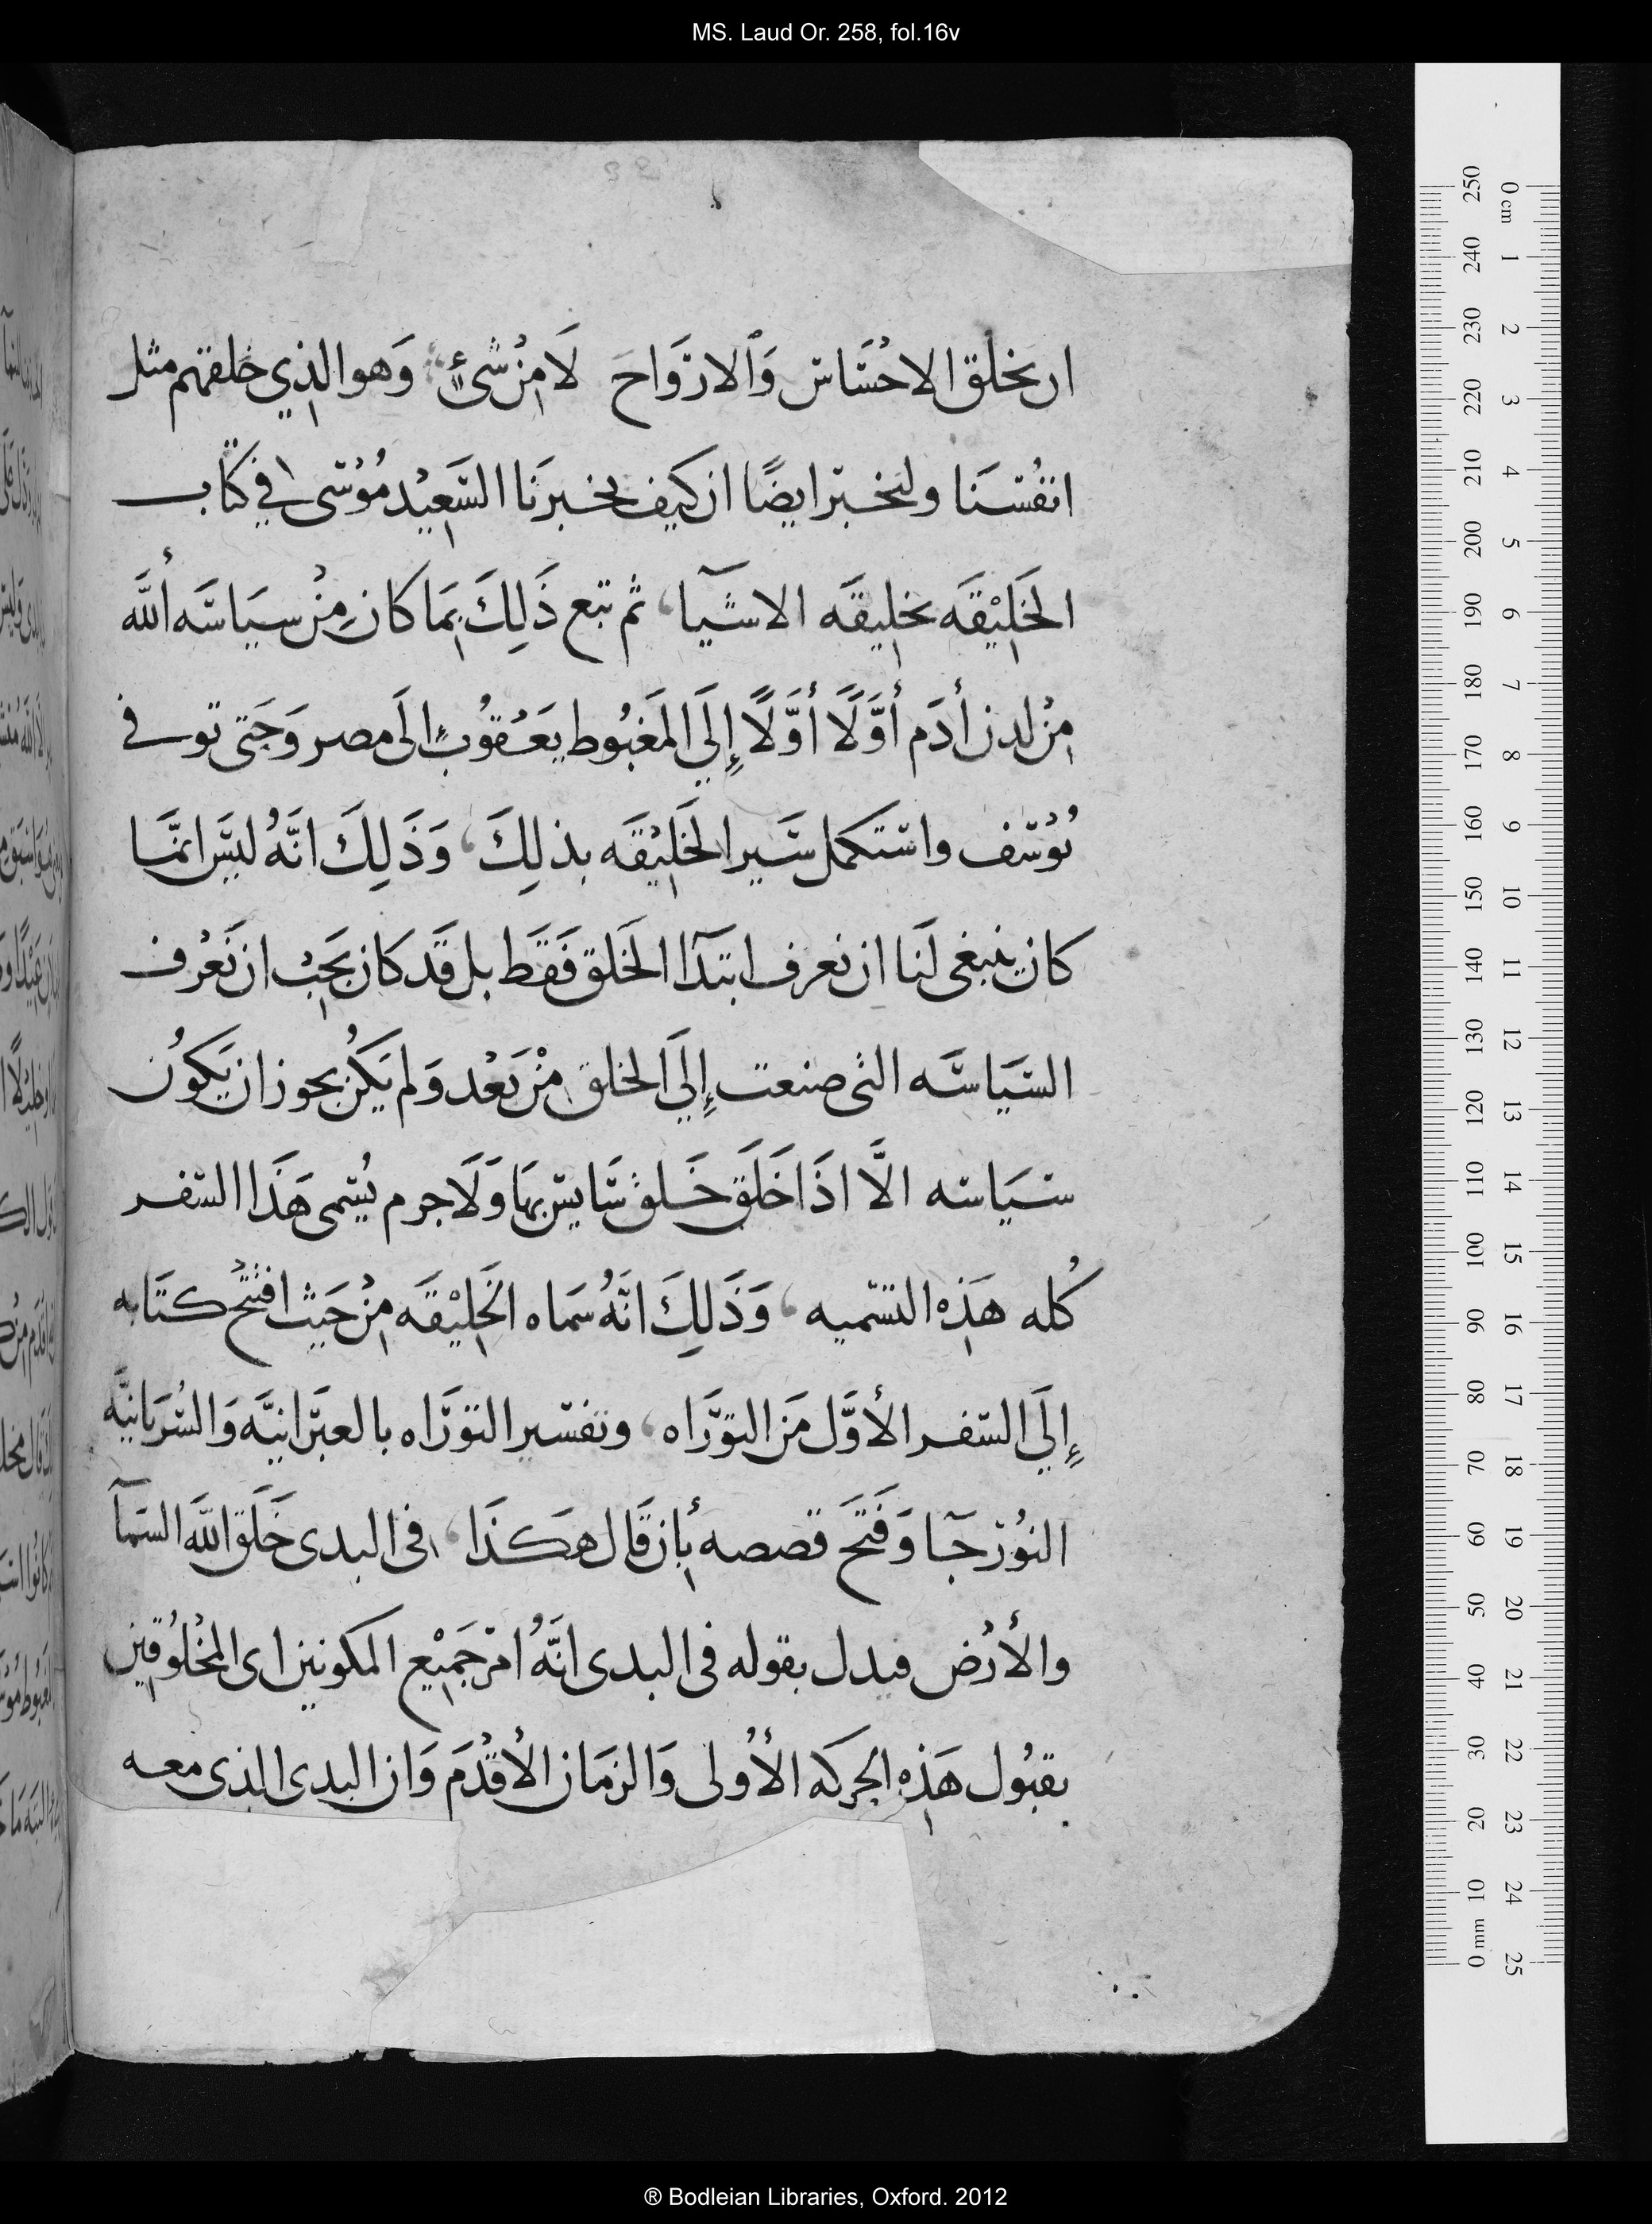 MS. Laud Or. 258, fol.16v
ان يخلق الاحْسَاس وَالارْوَاح لَا مِنْ شىءٍ وَهو الذِي خلقهم مثل
انفُسَنا ولنخبر ايضًا ان كَيف يخبرنَا السَّعِيْد مُوْسَى فِي كتَاب
الخَلِيْقَه بخليقَه الاشيآ ثم تبع ذَلِكَ بِمَا كان مِنْ سيَاسَه أللَّه
مِنْ لدن أدَم أوَّلًا أوَّلًا إِلَي المَغبُوط يَعْقُوْب الَى مصر وَحَتى توفى
يُوْسَف واستكمل سَير الخَلِيْقَه بذلِكَ وَذَلِكَ انَّهُ ليسَ انمَّا
كان ينبغى لَنا ان نعرف ابتدآ الخَلق فَقَط بل قَد كان يَجِبْ ان نَعْرف
السّيَاسَه التى صنعت إِلَي الخلق مِنْ بَعْد وَلم يَكُن يجوز ان يَكُوْن
سيَاسه الَّا اذَا خَلَق خَلق سَايس بهَا وَلَا جرم يُسَمى هَذَا السفر
كُله هَذِه التسميه وَذَلِكَ انَّهُ سَماه الخَلِيْقَه مِنْ حَيث افتتح كتَابه
إِلَي السفر الأوَّل مَن التورَاه وتفسير التورَاه بالعبرَانيَّه وَالسُّرْيَانيَّه
النُوْر جَا وَفَتَح قصصه بأِن قَال هَكَذَا فى البدى خَلَق اللَّه السَمآ
والأرْض فيدل بقوله فى البدى انَّهُ امر جَمِيْع المكونين اى المَخْلُوْقِين
بقبُول هَذِه الحركَه الأُولى وَالزمَان الأقْدَم وَان البدى الذى معه
0 cm 1 2 3 4 5 6 7 8 9 10 11 12 13 14 15 16 17 18 19 20 21 22 23 24 25
250 240 230 220 210 200 190 180 170 160 150 140 130 120 110 100 90 80 70 60 50 40 30 20 10 0 mm
® Bodleian Libraries, Oxford. 2012